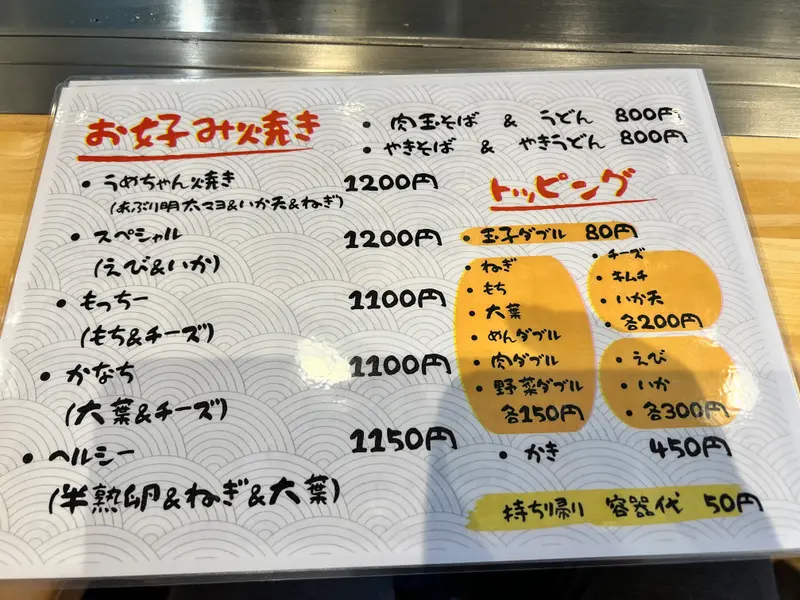 お好み焼き
• うめちゃん焼き 1200円
(あぶり明太マヨ&いか天&ねぎ)
• スペシャル 1200円
(えび&いか)
• もっちー 1100円
(もち&チーズ)
• かなち 1100円
(大葉&チーズ)
• ヘルシー 1150円
(半熟卵&ねぎ&大葉)
• 肉玉そば & うどん 800円
• やきそば & やきうどん 800円
トッピング
• 玉子ダブル 80円
• ねぎ
• もち
• 大葉
• めんダブル
• 肉ダブル
• 野菜ダブル
各150円
• チーズ
• キムチ
• いか天
• 各200円
• えび
• いか
• 各300円
• かき 450円
持ち帰り 容器代 50円